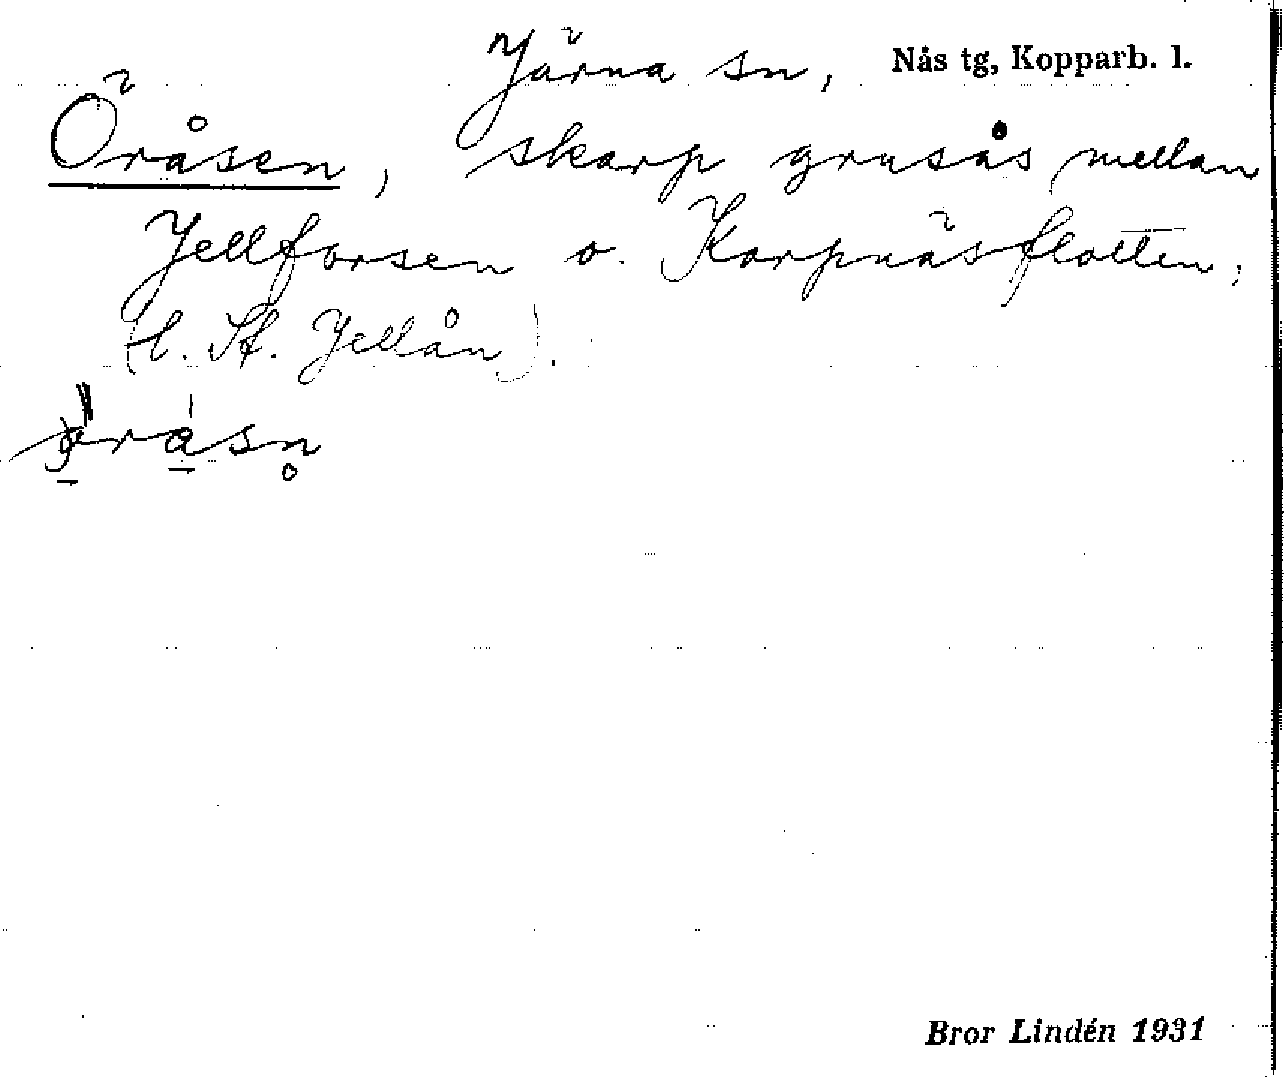 Järna sn, Nås tg, Kopparb. l.
Öråsen, skarp grusås mellan
Jellforsen o. Korpnäsflotten,
(t. St. Jellån).
Bror Lindén 1931